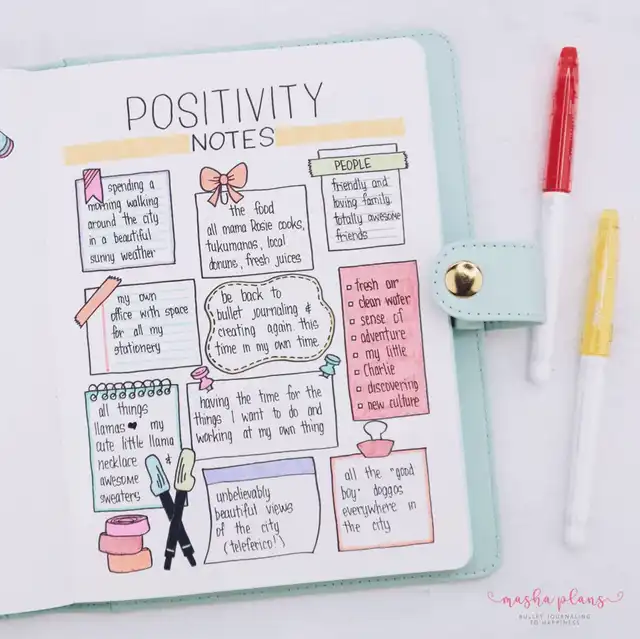 POSITIVITY
NOTES
spending a
morning walking
around the city
in a beautiful
sunny weather
the food
all mama Rosie cooks,
tukumanas, local
donuns, fresh juices
PEOPLE
friendly and
loving family
totally awesome
friends
my own
office with space
for all my
stationery
be back to
bullet journaling &
creating again this
time in my own time
fresh air
clean water
sense of
adventure
my little
Charlie
discovering
new culture
all things
llamas ♥ my
cute little llama
necklace &
awesome
sweaters
having the time for the
things I want to do and
working at my own thing
unbelievably
beautiful views
of the city
(teleferico!)
all the "good
boy" doggos
everywhere in
the city
masha plans
BULLET JOURNALING
TO HAPPINESS